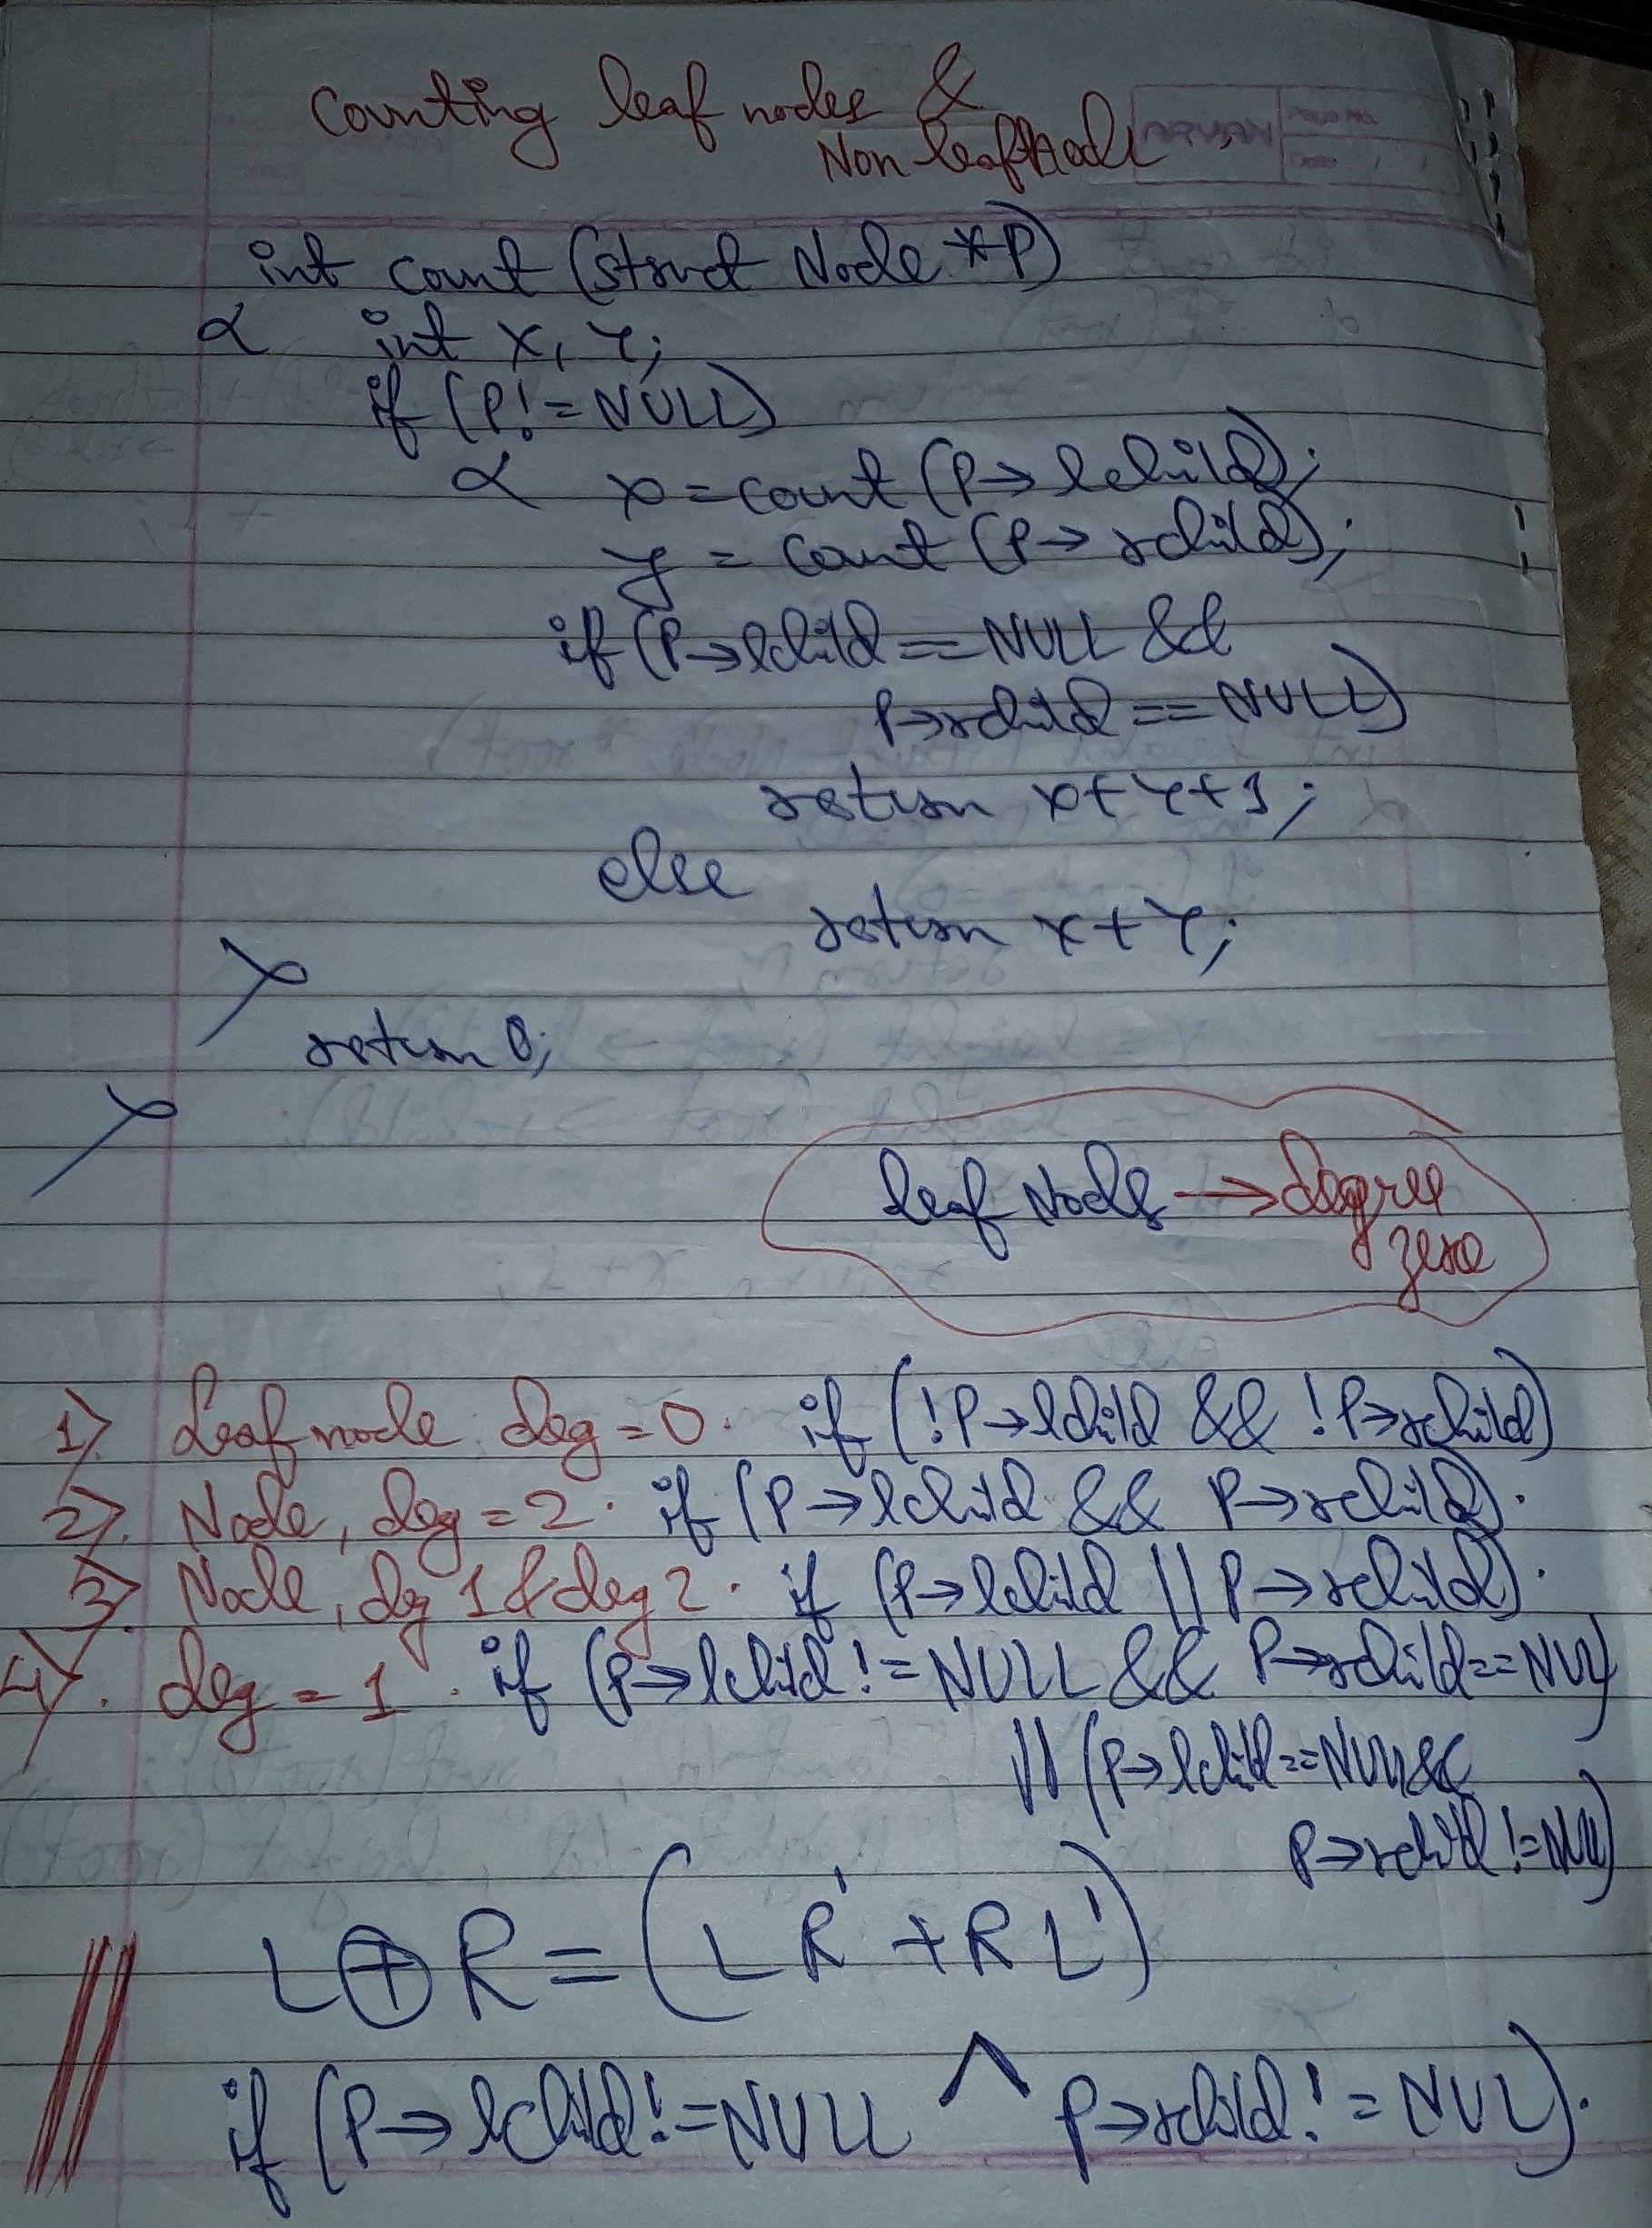 Counting leaf nodes &
Non leaf Node
int count (struct Node *P)
{ int x, y;
if (P! = NULL)
{ x = count (P→ lchild);
y = count (P→ rchild);
if (P→lchild == NULL &&
P→rchild == NULL)
return x+y+1;
else
return x+y;
}
return 0;
}
leaf Nodes → degree
zero
1) Leaf node deg = 0. if (!P→lchild && !P→rchild)
2) Node, deg = 2. if (P→lchild && P→rchild).
3) Node, deg 1 & deg 2. if (P→lchild || P→rchild).
4) deg = 1. if (P→lchild != NULL && P→rchild==NUL)
|| (P→lchild==NULL&&
P→rchild !=NULL)
L⊕R = (LR' + RL')
if (P→lchild!=NULL ^ P→rchild! = NUL).